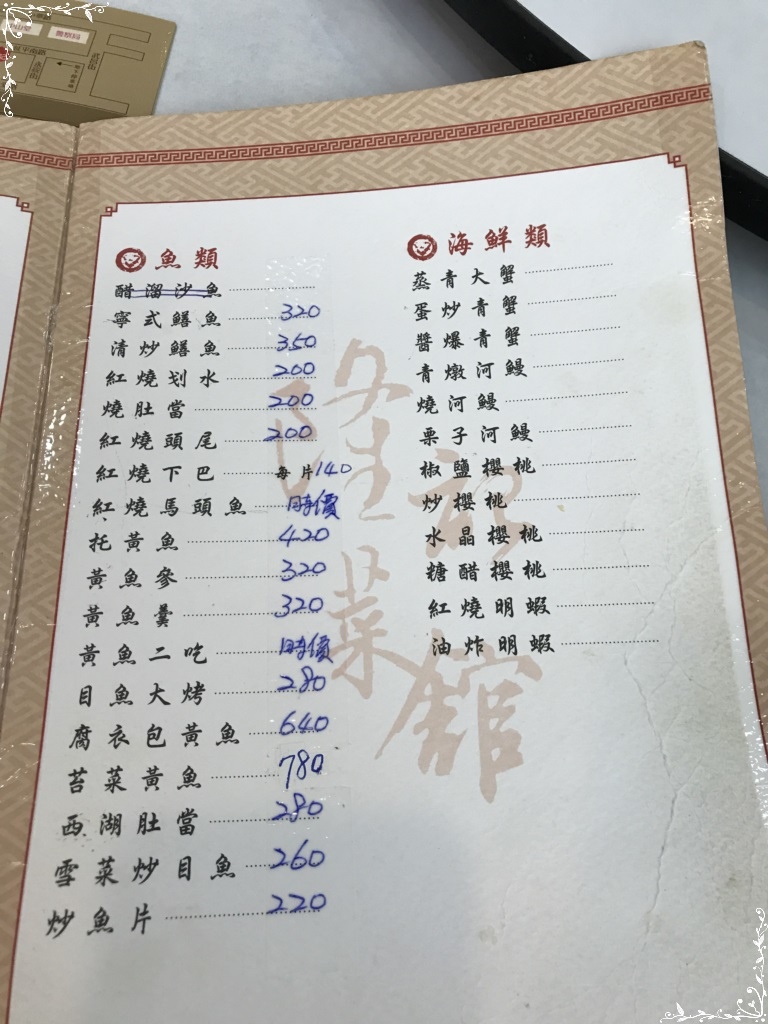 魚類
醋溜沙魚
寧式鱔魚 320
清炒鱔魚 350
紅燒划水 200
燒肚當 200
紅燒頭尾 200
紅燒下巴 每片140
紅燒馬頭魚 時價
托黃魚 420
黃魚參 320
黃魚羹 320
黃魚二吃 時價
目魚大烤 280
腐衣包黃魚 640
苔菜黃魚 780
西湖肚當 280
雪菜炒目魚 260
炒魚片 220
海鮮類
蒸青大蟹
蛋炒青蟹
醬爆青蟹
青燉河鰻
燒河鰻
栗子河鰻
椒鹽櫻桃
炒櫻桃
水晶櫻桃
糖醋櫻桃
紅燒明蝦
油炸明蝦
隆記菜館